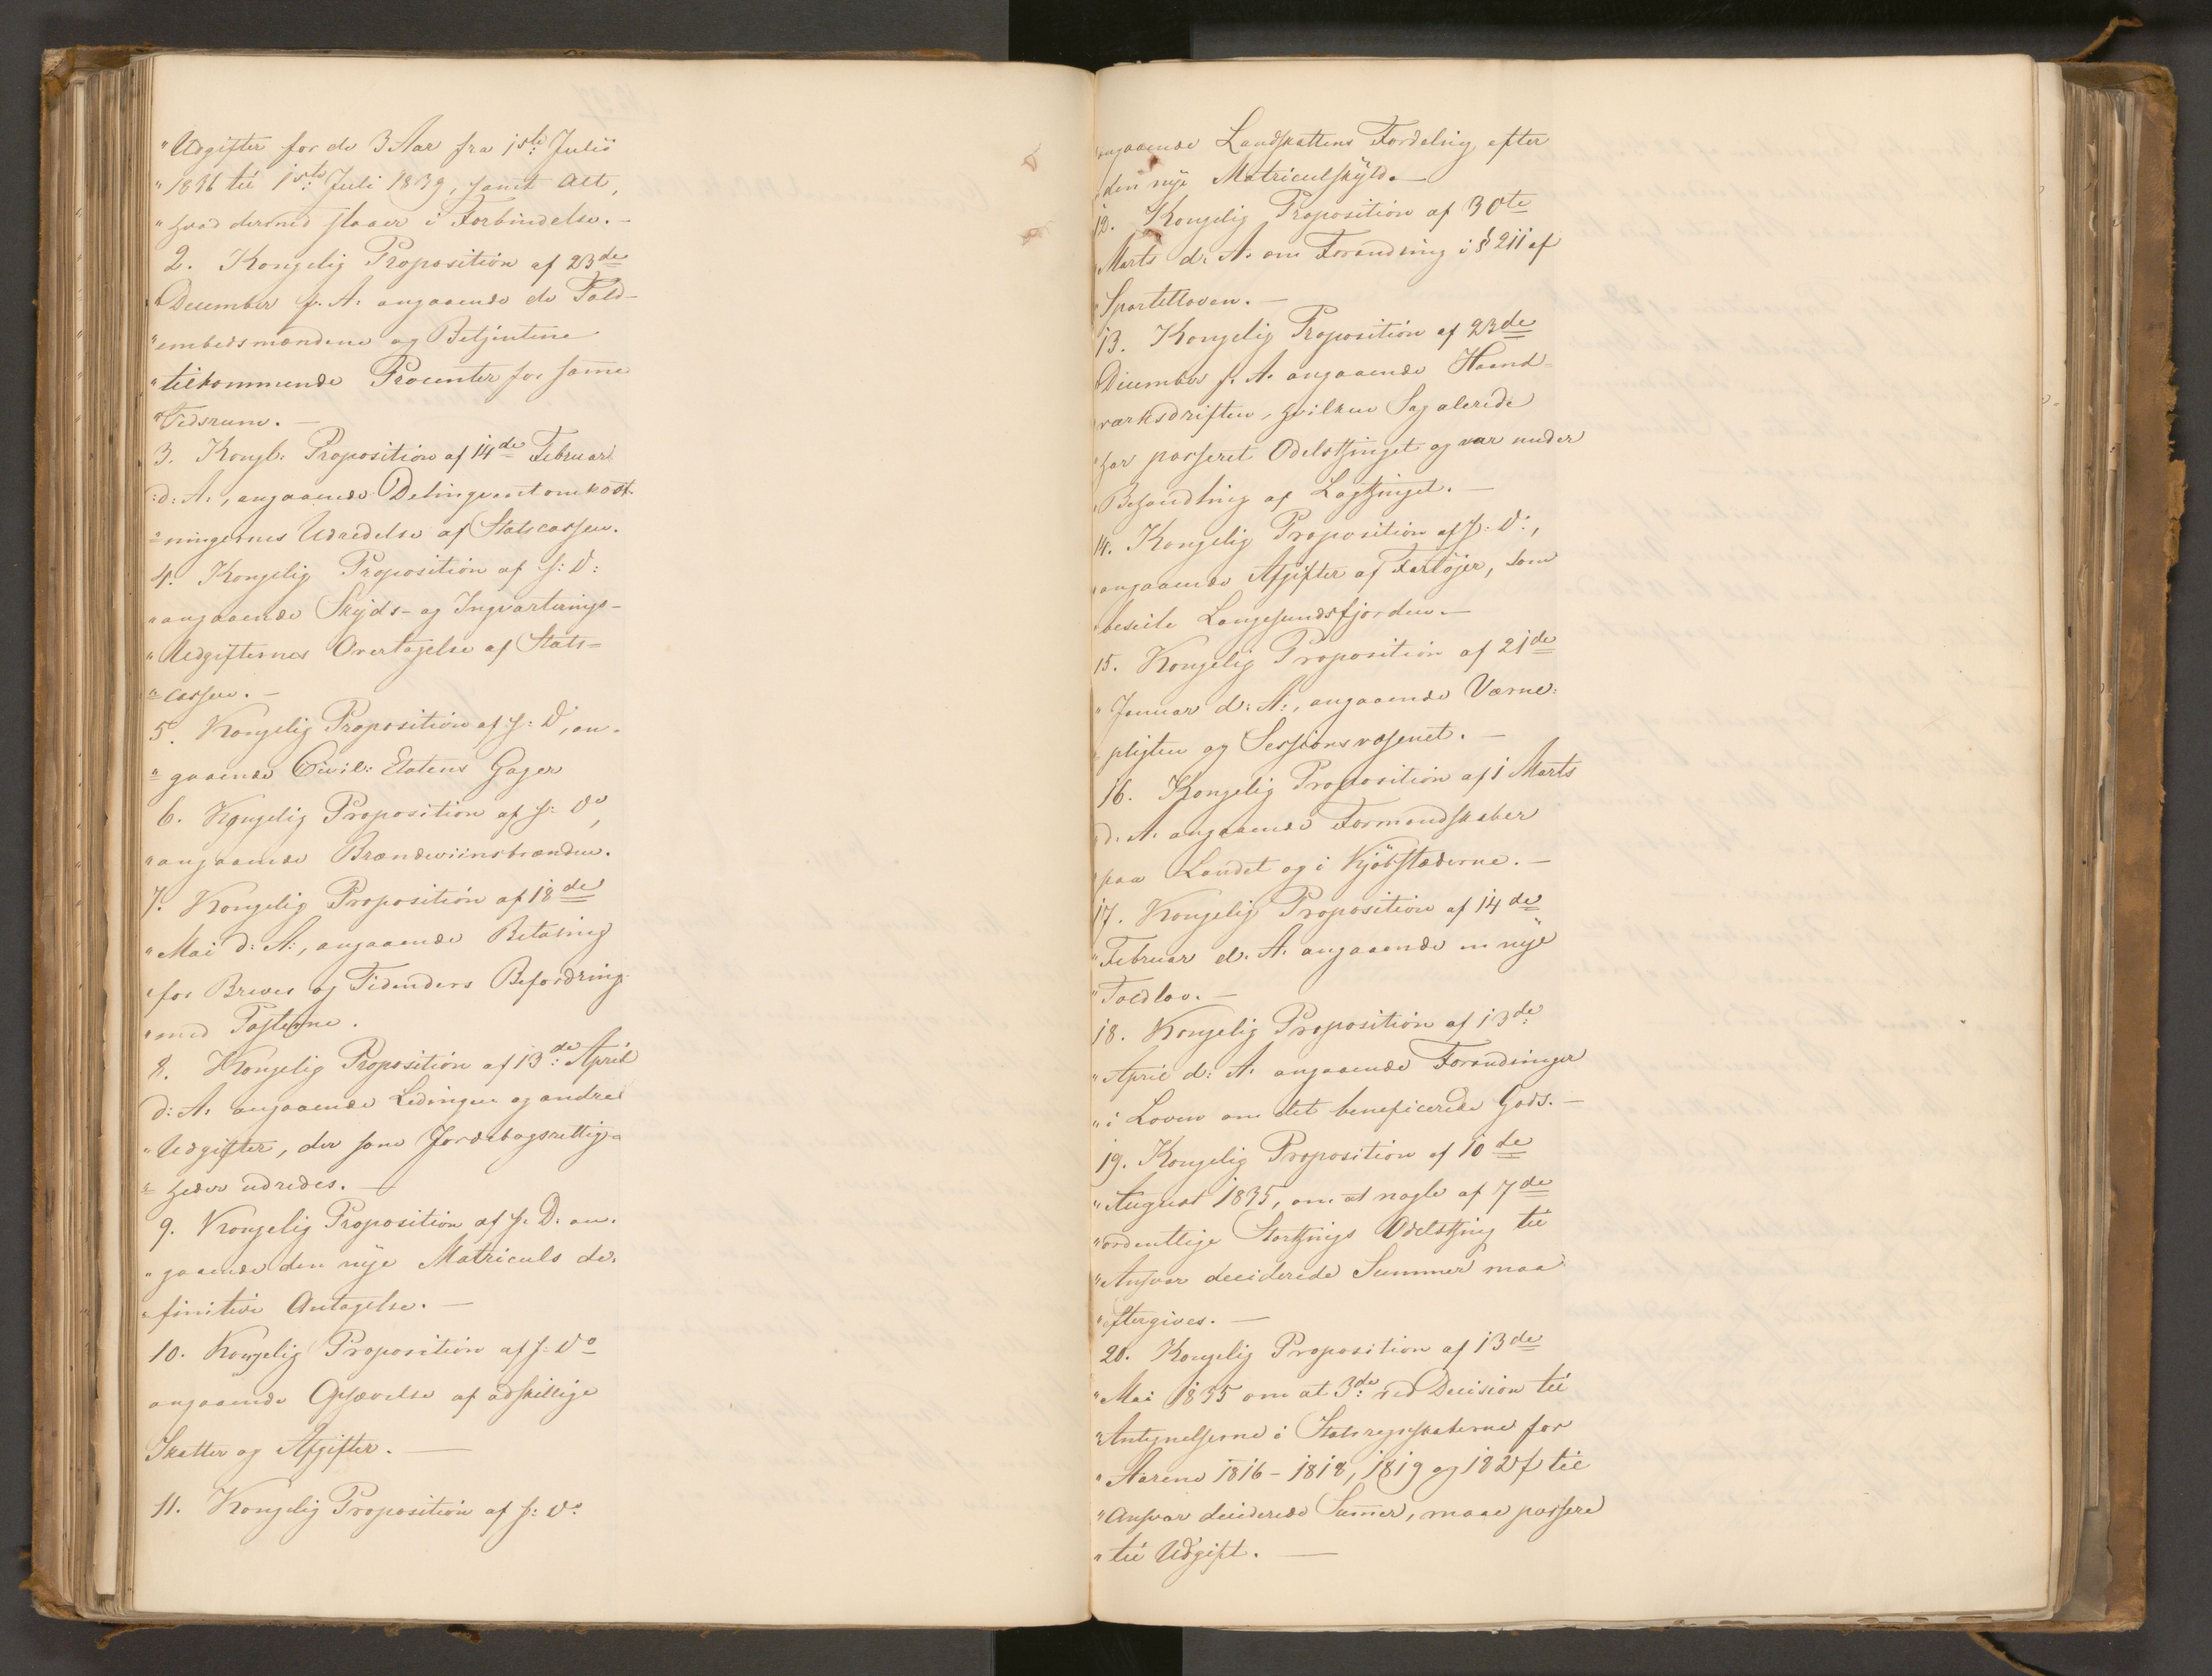 "Udgifter for de 3 Aar fra 1ste Julii
"1836 til 1ste Juli 1839, samt Alt,
"hvad dermed staaer i Forbindelse. —
2. Kongelig Proposition af 23de
December f. A. angaaende de Told-
"embedsmændene og Betjentene
"tilkommende Procenter for samme
"Tidsrum. —
3. Kongl: Proposition af 14de Februar
d: A:, angaaende Delinqventomkost-
"ningernes Udredelse af Statscassen.
4. Kongelig Proposition af s: D:
"angaaende Skyds- og Inqvarterings-
"Udgifternes Overtagelse af Stats-
"cassen. —
5. Kongelig Proposition af s: D, an-
"gaaende Civil: Etatens Gager
6. Kongelig Proposition af s: Do,
"angaaende Brændeviinsbrænden.
7. Kongelig Proposition af 18de
"Mai d: A:, angaaende Betaling
"for Breves og Tidenders Befordring
"med Posterne.
8. Kongelig Proposition af 13de April
d: A. angaaende Ledingen og andre
"Udgifter, der som Jordebogsrettig-
"heder udredes. —
9. Kongelig Proposition af s: D: an-
"gaaende den nye Matriculs de-
"finitive Antagelse. —
10. Kongelig Proposition af s: Do
angaaende Ophævelse af adskillige
Skatter og Afgifter. —
11. Kongelig Proposition af s: Do
angaaende Landskattens Fordeling efter
den nye Matriculskyld. —
12. Kongelig Proposition af 30te
"Marts d: A. om Forandring i § 211 af
"Sportelloven. —
13. Kongelig Proposition af 23de
December f. A. angaaende Haand-
værksdriften, hvilken Sag alerede
"har passeret Odelsthinget og var under
"Behandling af Lagthinget. —
14. Kongelig Proposition af s: D:,
"angaaende Afgifter af Fartøjer, som
"beseile Langesundsfjorden. —
15. Kongelig Proposition af 21de
"Januar d: A:, angaaende Værne-
"pligten og Sessionsvæsenet. —
16. Kongelig Proposition af 1 Marts
"d. A. angaaende Formandskaber
"paa Landet og i Kjøbstæderne. —
17. Kongelig Proposition af 14de
"Februar d. A. angaaende en nye
"Toldlov. —
18. Kongelig Proposition af 13de
"April d: A. angaaende Forandringer
"i Loven om det beneficerede Gods. —
19. Kongelig Proposition af 10de
"August 1835, om at nogle af 7de
"ordentlige Storthings Odelsthing til
"Ansvar deciderede Summer maa
"eftergives. —
20. Kongelig Proposition af 13de
"Mai 1835 om at 3de ved Decision til
"Antegnelserne i Statsregnskaberne for
"Aarene 1816 - 1818, 1819 og til
"Ansvar deciderede Sumer, maae passere
"til Udgift. —